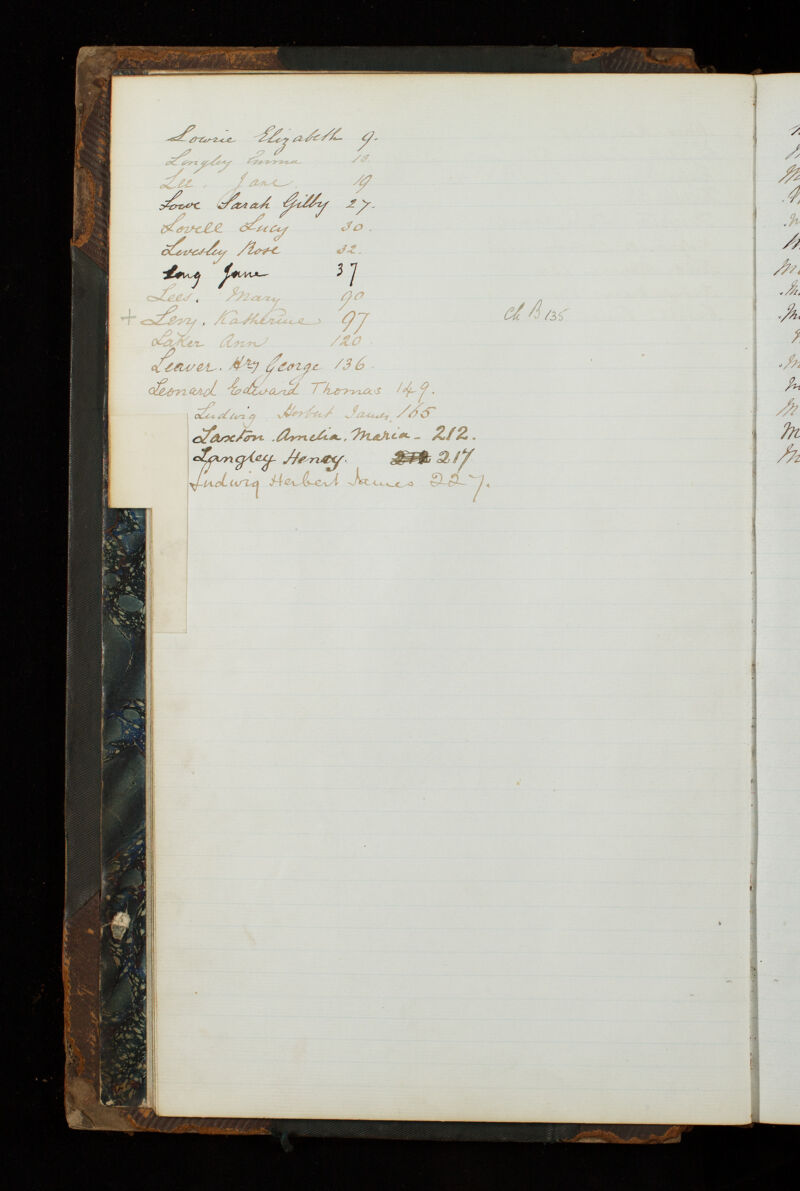 Lowrie Elizabeth 9.
Longley Emma 13
Lee. Jane 19
Lowe Sarah Gilby 27.
Lovell Lucy 30.
Levesley Rose 32.
Long Jane 37
Lees. Mary 90
+ Levy. Katherine 97 Ch B 135
Laker Ann 120
Leaver. Hry George 136
Leonard Edward Thomas 149.
Ludwig Herbert James 165
Laxton. Amelia. Maria - 212.
Langley Henry. 217
Ludwig Herbert James 227.